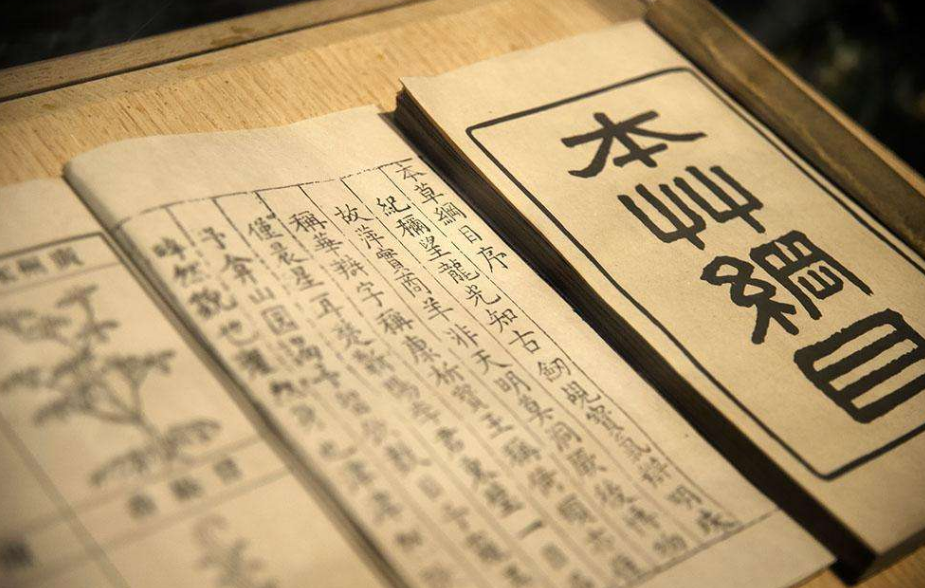 本草綱目
本草綱目序
紀稱望龍光知古劒覘寶氣辨明珠
故萍實商羊非天明莫洞厥後博物
稱華辯字稱康析寶玉稱倚頓亦
僅晨星耳楚蘄陽李書東璧一日
予弇山園謁予留飲數日予窺
睟然貌也癯然身也津津